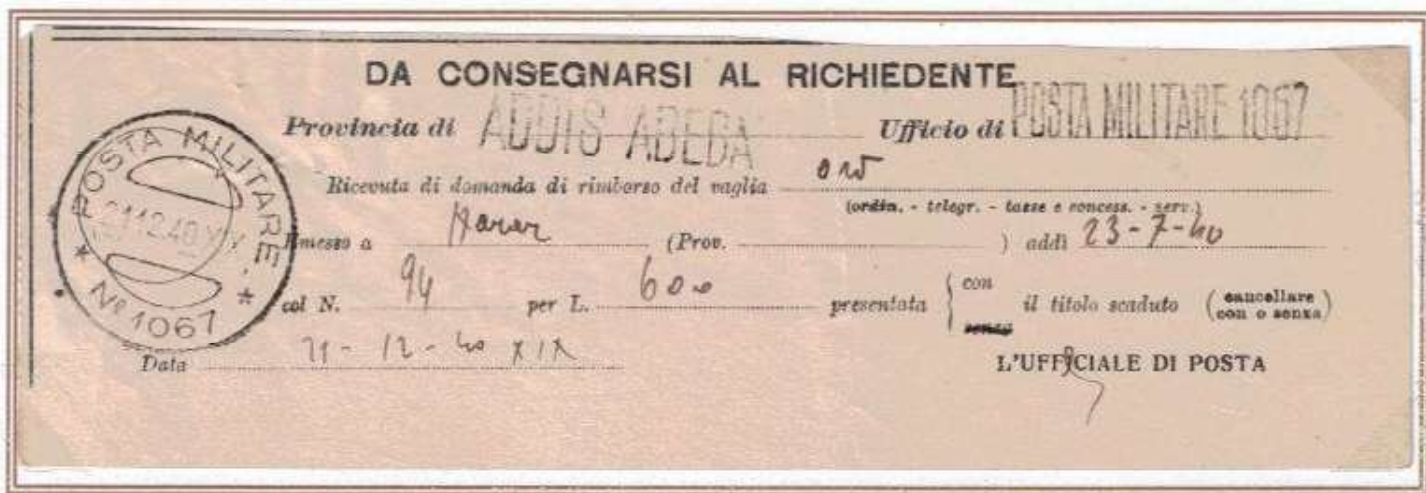 DA CONSEGNARSI AL RICHIEDENTE
Provincia di ADDIS ABEBA Ufficio di POSTA MILITARE 1067
Ricevuta di domanda di rimborso del vaglia ord
(ordin. - telegr. - tasse e concess. - serv.)
Emesso a Harar (Prov. ) addì 23-7-40
col N. 94 per L. 600 presentata { con senza il titolo scaduto (cancellare con o senza)
Data 21-12-40 XIX
L'UFFICIALE DI POSTA
POSTA MILITARE
21.12.40 XIX
* Nº 1067 *